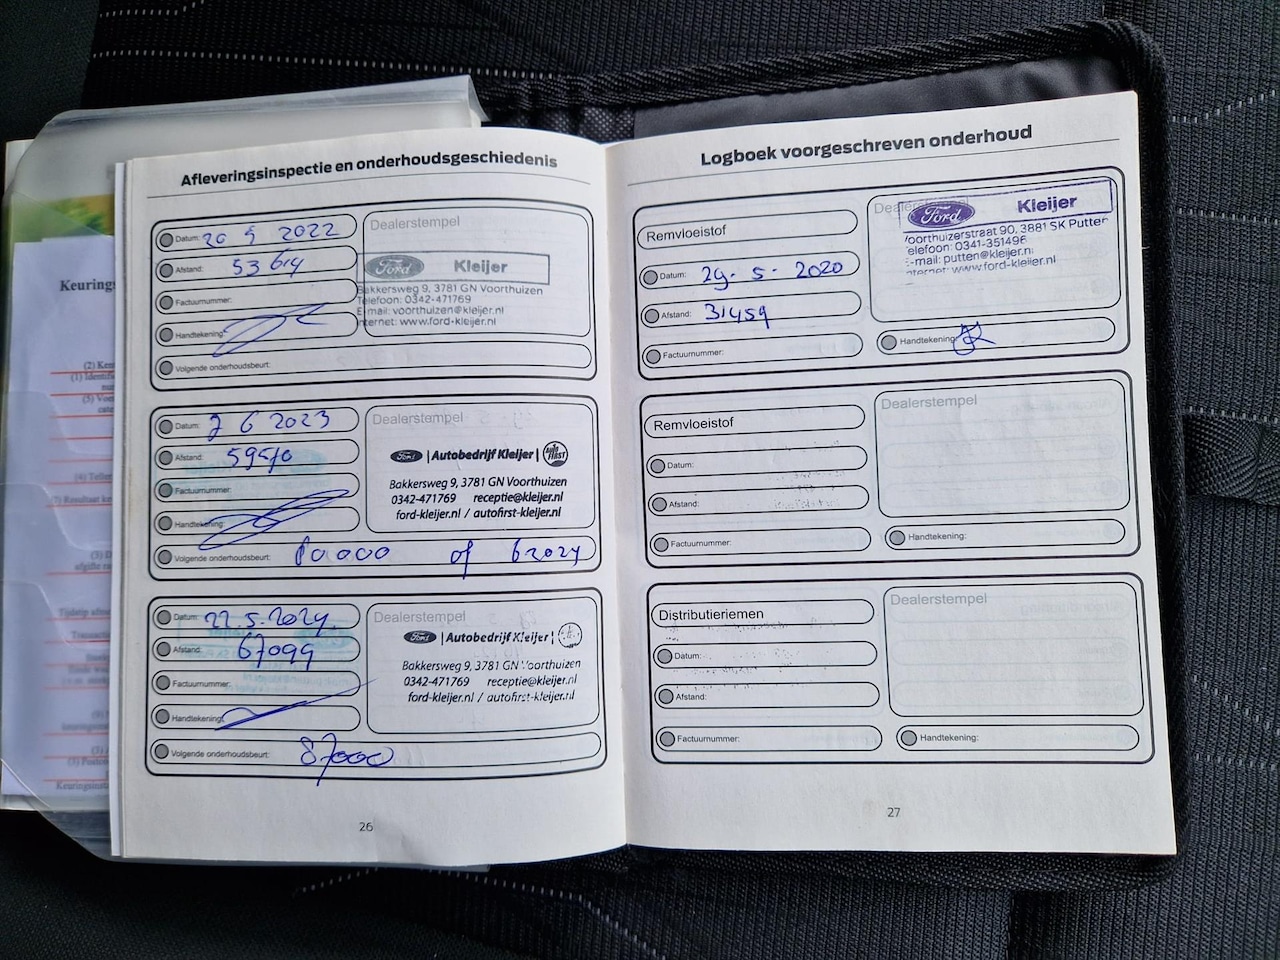 Afleveringsinspectie en onderhoudsgeschiedenis
Datum: 20 5 2022
Afstand: 53 614
Factuurnummer:
Handtekening:
Volgende onderhoudsbeurt:
Dealerstempel
Ford Kleijer
Bakkersweg 9, 3781 GN Voorthuizen
Telefoon: 0342-471769
E-mail: voorthuizen@kleijer.nl
Internet: www.ford-kleijer.nl
Datum: 2 6 2023
Afstand:
Factuurnummer:
Handtekening:
Volgende onderhoudsbeurt: 80000 of 6 2024
Dealerstempel
Ford | Autobedrijf Kleijer | AUTO FIRST
Bakkersweg 9, 3781 GN Voorthuizen
0342-471769 receptie@kleijer.nl
ford-kleijer.nl / autofirst-kleijer.nl
Datum: 22.5.2024.
Afstand: 67099
Factuurnummer:
Handtekening:
Volgende onderhoudsbeurt: 87000
Dealerstempel
Ford | Autobedrijf Kleijer |
Bakkersweg 9, 3781 GN Voorthuizen
0342-471769 receptie@kleijer.nl
ford-kleijer.nl / autofirst-kleijer.nl
26
Logboek voorgeschreven onderhoud
Remvloeistof
Datum: 29-5-2020
Afstand: 31459
Factuurnummer:
Ford Kleijer
Voorthuizerstraat 90, 3881 SK Putten
elefoon: 0341-351496
E-mail: putten@kleijer.nl
nternet: www.ford-kleijer.nl
Handtekening:
Remvloeistof
Datum:
Afstand:
Factuurnummer:
Dealerstempel
Handtekening:
Distributieriemen
Datum:
Afstand:
Factuurnummer:
Dealerstempel
Handtekening:
27
Keurings